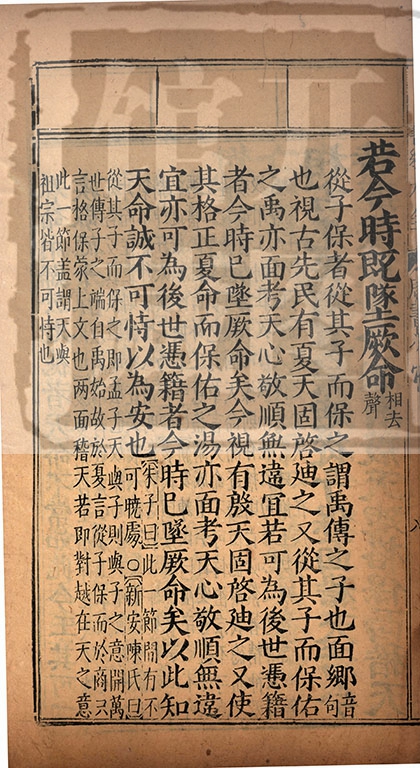 若今時既墜厥命相去
聲
從子保者從其子而保之謂禹傳之子也面鄉音
也視古先民有夏天固啓迪之又從其子而保佑
之禹亦面考天心敬順無違宜若可為後世憑籍
者今時已墜厥命矣今視有殷天固啓迪之又使
其格正夏命而保佑之湯亦面考天心敬順無違
宜亦可為後世憑籍者今時已墜厥命矣以此知
天命誠不可恃以為安也朱子曰此一節間有不
可曉處○新安陳氏曰
從其子而保之即孟子天與子則與子之意開萬
世傳子之端自禹始故於夏言從子保而於商只
言格保蒙上文也两面稽天若即對越在天之意
此一節盖謂天與
祖宗皆不可恃也